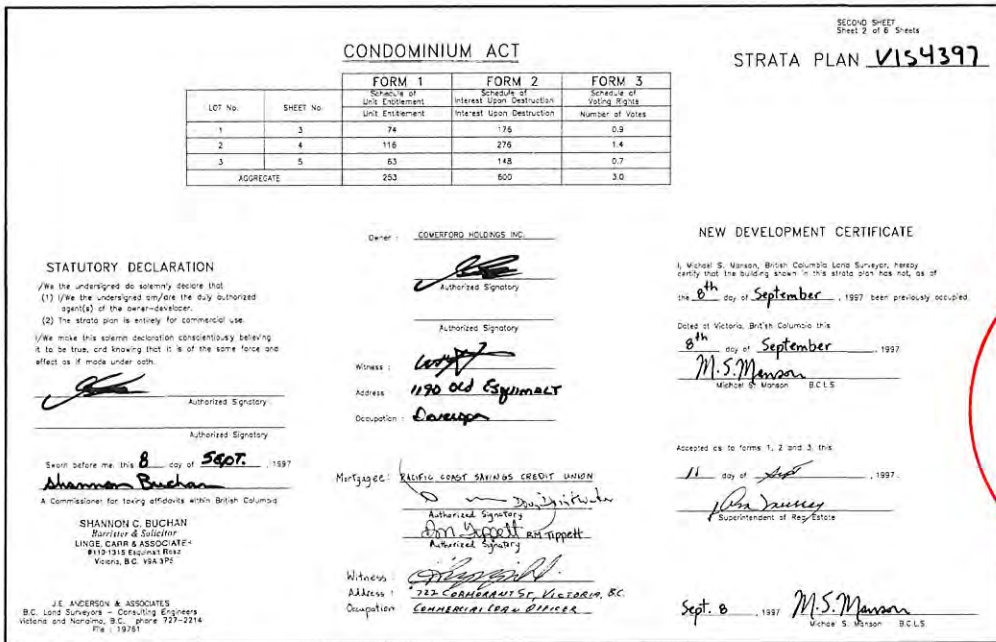 SECOND SHEET
Sheet 2 of 6 Sheets
CONDOMINIUM ACT
STRATA PLAN VIS4397
FORM 1 FORM 2 FORM 3
LOT No. SHEET No. Schedule of Unit Entitlement Schedule of Interest Upon Destruction Schedule of Voting Rights
Unit Entitlement Interest Upon Destruction Number of Votes
1 3 74 176 0.9
2 4 116 276 1.4
3 5 63 148 0.7
AGGREGATE 253 600 3.0
STATUTORY DECLARATION
I/We the undersigned do solemnly declare that
(1) I/We the undersigned am/are the duly authorized
agent(s) of the owner-developer.
(2) The strata plan is entirely for commercial use.
I/We make this solemn declaration conscientiously believing
it to be true, and knowing that it is of the same force and
effect as if made under oath.
Authorized Signatory
Authorized Signatory
Sworn before me, this 8 day of SEPT. , 1997
Shannon Buchan
A Commissioner for taking affidavits within British Columbia
SHANNON C. BUCHAN
Barrister & Solicitor
LINGE, CARR & ASSOCIATES
#112-1315 Esquimalt Road
Victoria, B.C. V9A 3P5
J.E. ANDERSON & ASSOCIATES
B.C. Land Surveyors - Consulting Engineers
Victoria and Nanaimo, B.C. phone 727-2214
File : 19761
Owner : COMERFORD HOLDINGS INC.
Authorized Signatory
Authorized Signatory
Witness :
Address : 1190 Old Esquimalt
Occupation : Developer
Mortgagee: PACIFIC COAST SAVINGS CREDIT UNION
Authorized Signatory
R.M. Tippett RM Tippett
Authorized Signatory
Witness :
Address : 722 CORMORANT ST, VICTORIA, B.C.
Occupation COMMERCIAL LOAN OFFICER
NEW DEVELOPMENT CERTIFICATE
I, Michael S. Manson, British Columbia Land Surveyor, hereby
certify that the building shown in this strata plan has not, as of
the 8th day of September , 1997 been previously occupied.
Dated at Victoria, British Columbia this
8th day of September , 1997
M.S. Manson
Michael S. Manson B.C.L.S.
Accepted as to forms 1, 2 and 3, this
11 day of Sept , 1997.
Superintendent of Real Estate
Sept. 8 , 1997 M.S. Manson
Michael S. Manson B.C.L.S.